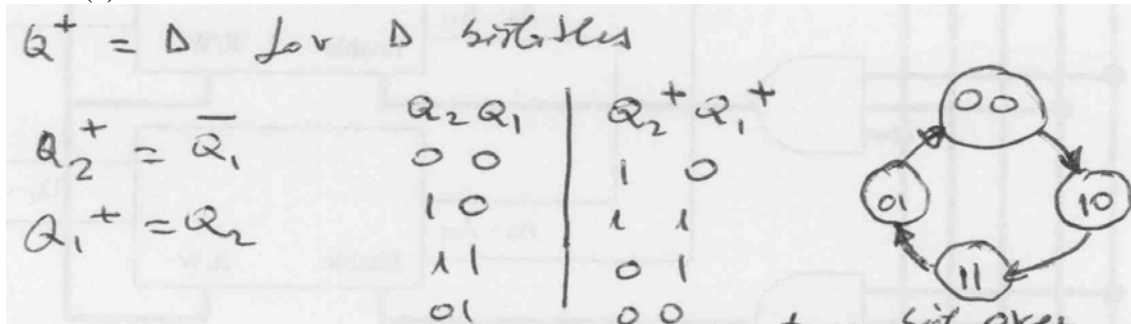 Q⁺ = D for D bistables
Q₂⁺ = Q̅₁
Q₁⁺ = Q₂
Q₂ Q₁ | Q₂⁺ Q₁⁺
0 0 | 1 0
1 0 | 1 1
1 1 | 0 1
0 1 | 0 0
00
01
10
11